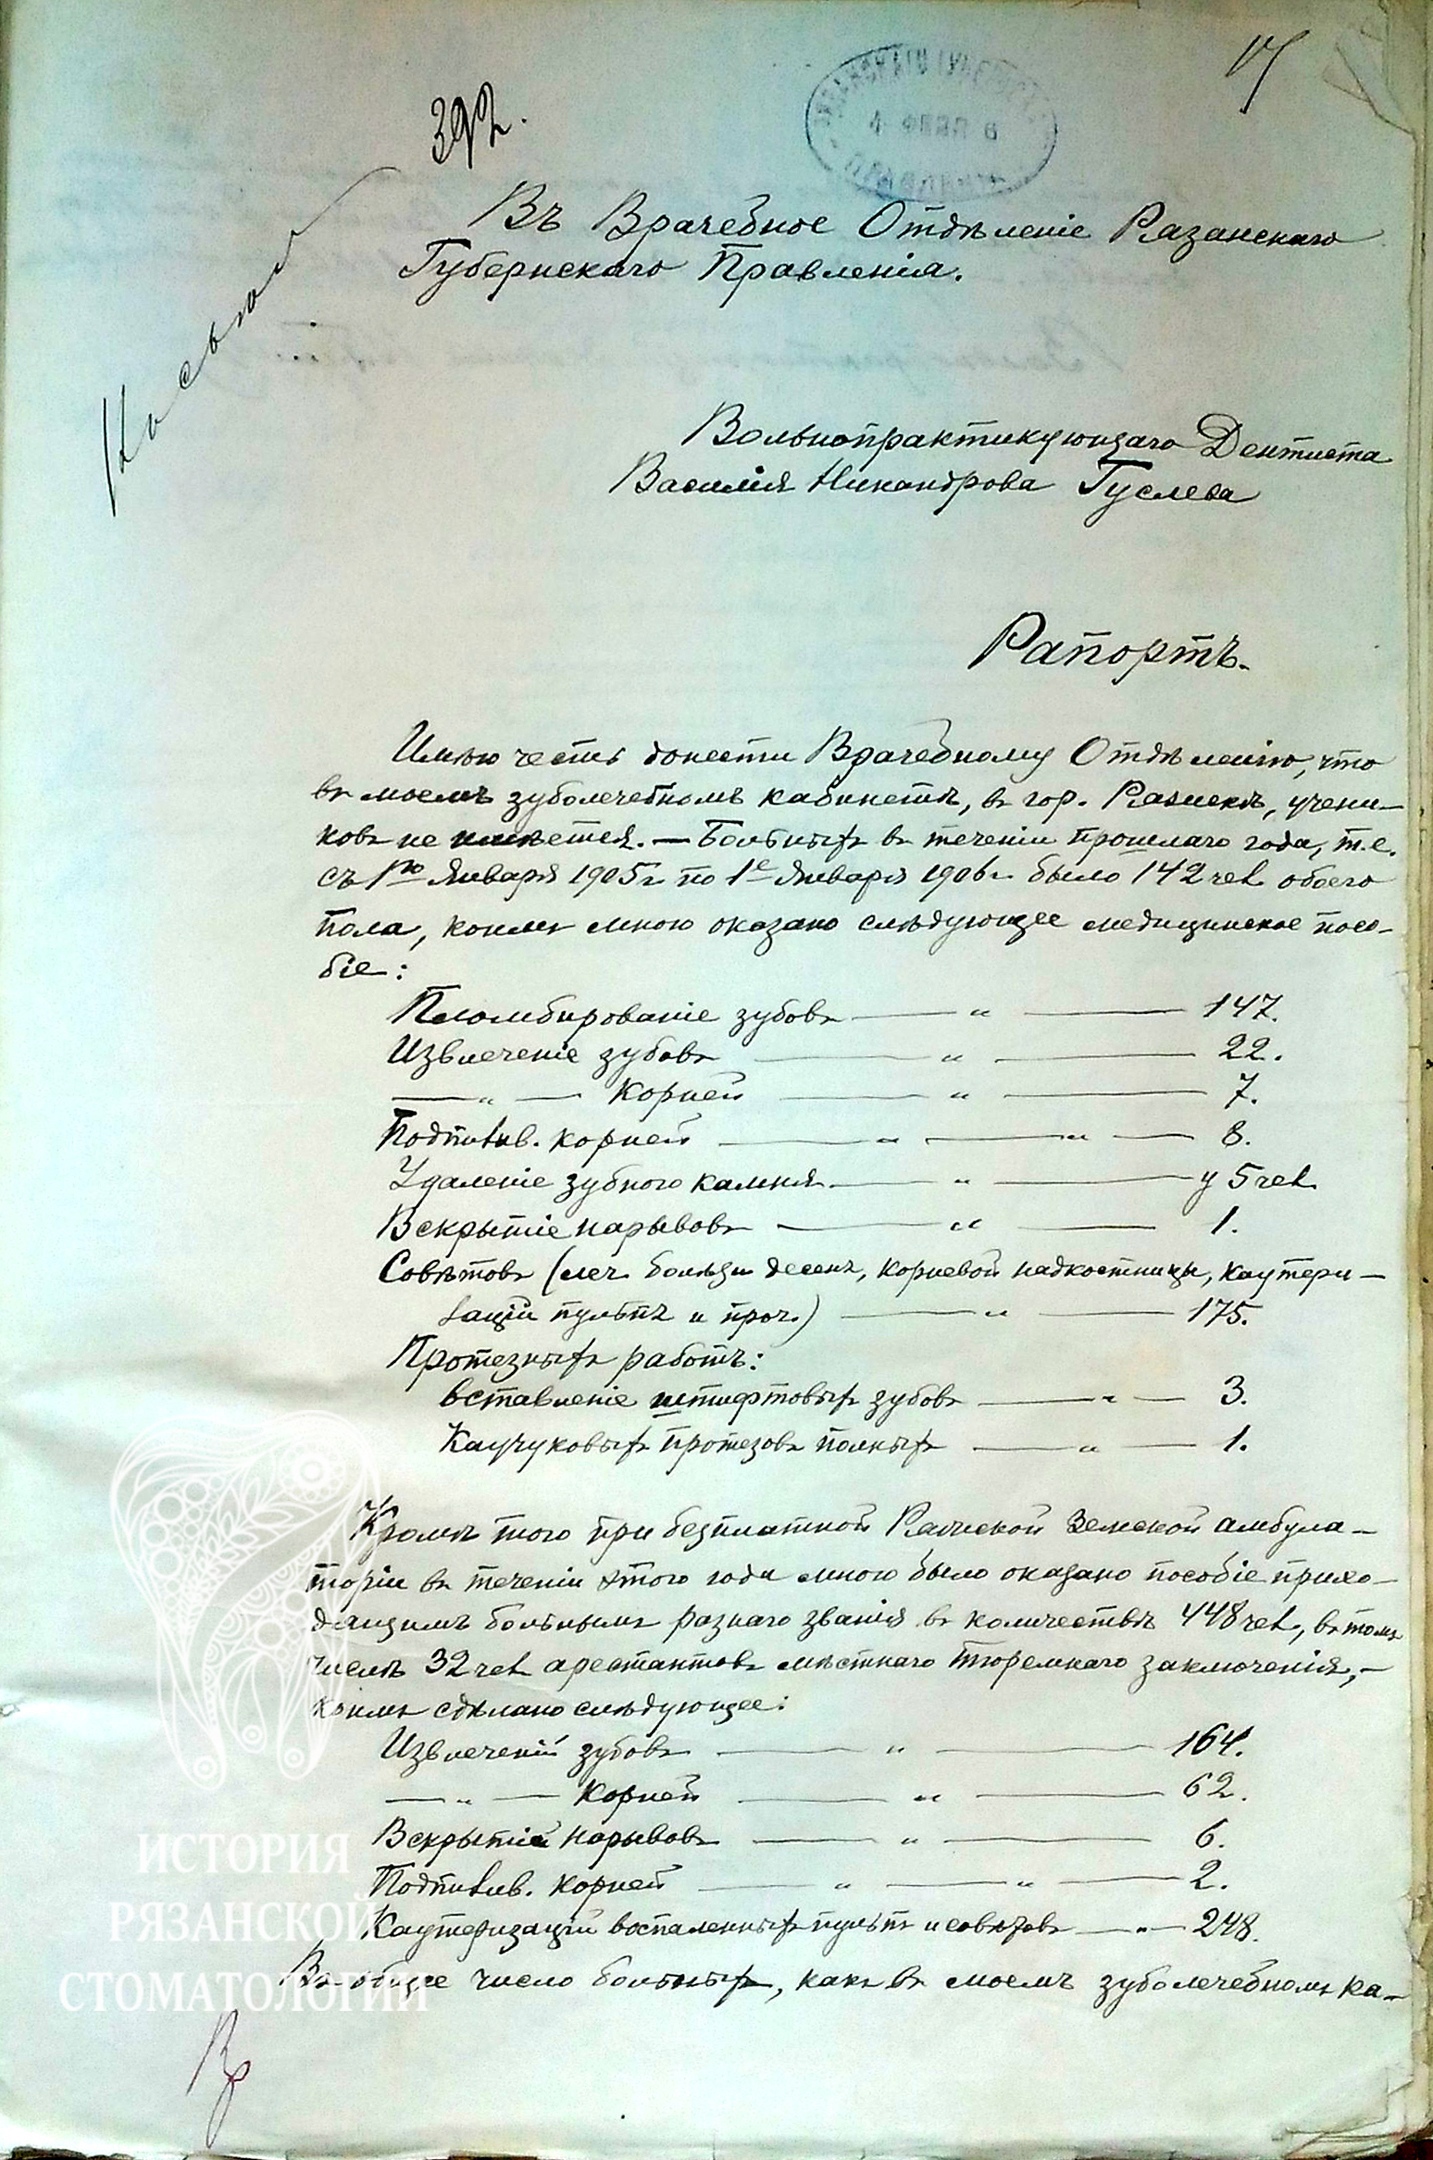 17
392.
Въ Врачебное Отдѣленіе Рязанскаго
Губернскаго Правленія.
Вольнопрактикующаго Дентиста
Василія Никандрова Гуслева
Рапортъ.
Имѣю честь донести Врачебному Отдѣленію, что
въ моемъ зуболечебномъ кабинетѣ, въ гор. Ряжскѣ, учени-
ковъ не имѣется. — Больныхъ въ теченіи прошлаго года, т.е.
съ 1го Января 1905г. по 1е Января 1906г. было 142 чел. обоего
пола, коимъ мною оказано слѣдующее медицинское посо-
біе:
Пломбированіе зубовъ — " — 147.
Извлеченіе зубовъ — " — 22.
— " — Корней — " — 7.
Подпилив. корней — " — " — 8.
Удаленіе зубного камня — " — у 5 чел.
Вскрытіе нарывовъ — " — 1.
Совѣтовъ (леч. болѣзни десенъ, корневой надкостницы, каутери-
заціи пульпъ и проч.) — " — 175.
Протезныхъ работъ:
вставленіе штифтовыхъ зубовъ — " — 3.
Каучуковыхъ протезовъ полныхъ — " — 1.
Кромѣ того при безплатной Ряжской Земской амбула-
торіи въ теченіи этого года мною было оказано пособіе прихо-
дящимъ больнымъ разнаго званія въ количествѣ 448 чел., въ томъ
числѣ 32 чел. арестантовъ мѣстнаго тюремнаго заключенія, -
коимъ сдѣлано слѣдующее:
Извлеченій зубовъ — " — 164.
— " — Корней — " — 62.
Вскрытій нарывовъ — " — 6.
Подпилив. корней — " — " — 2.
Каутеризацій воспаленныхъ пульпъ и совѣтовъ — " — 248.
Въ общее число больныхъ, какъ въ моемъ зуболечебномъ ка-
ИСТОРИЯ
РЯЗАНСКОЙ
СТОМАТОЛОГИИ